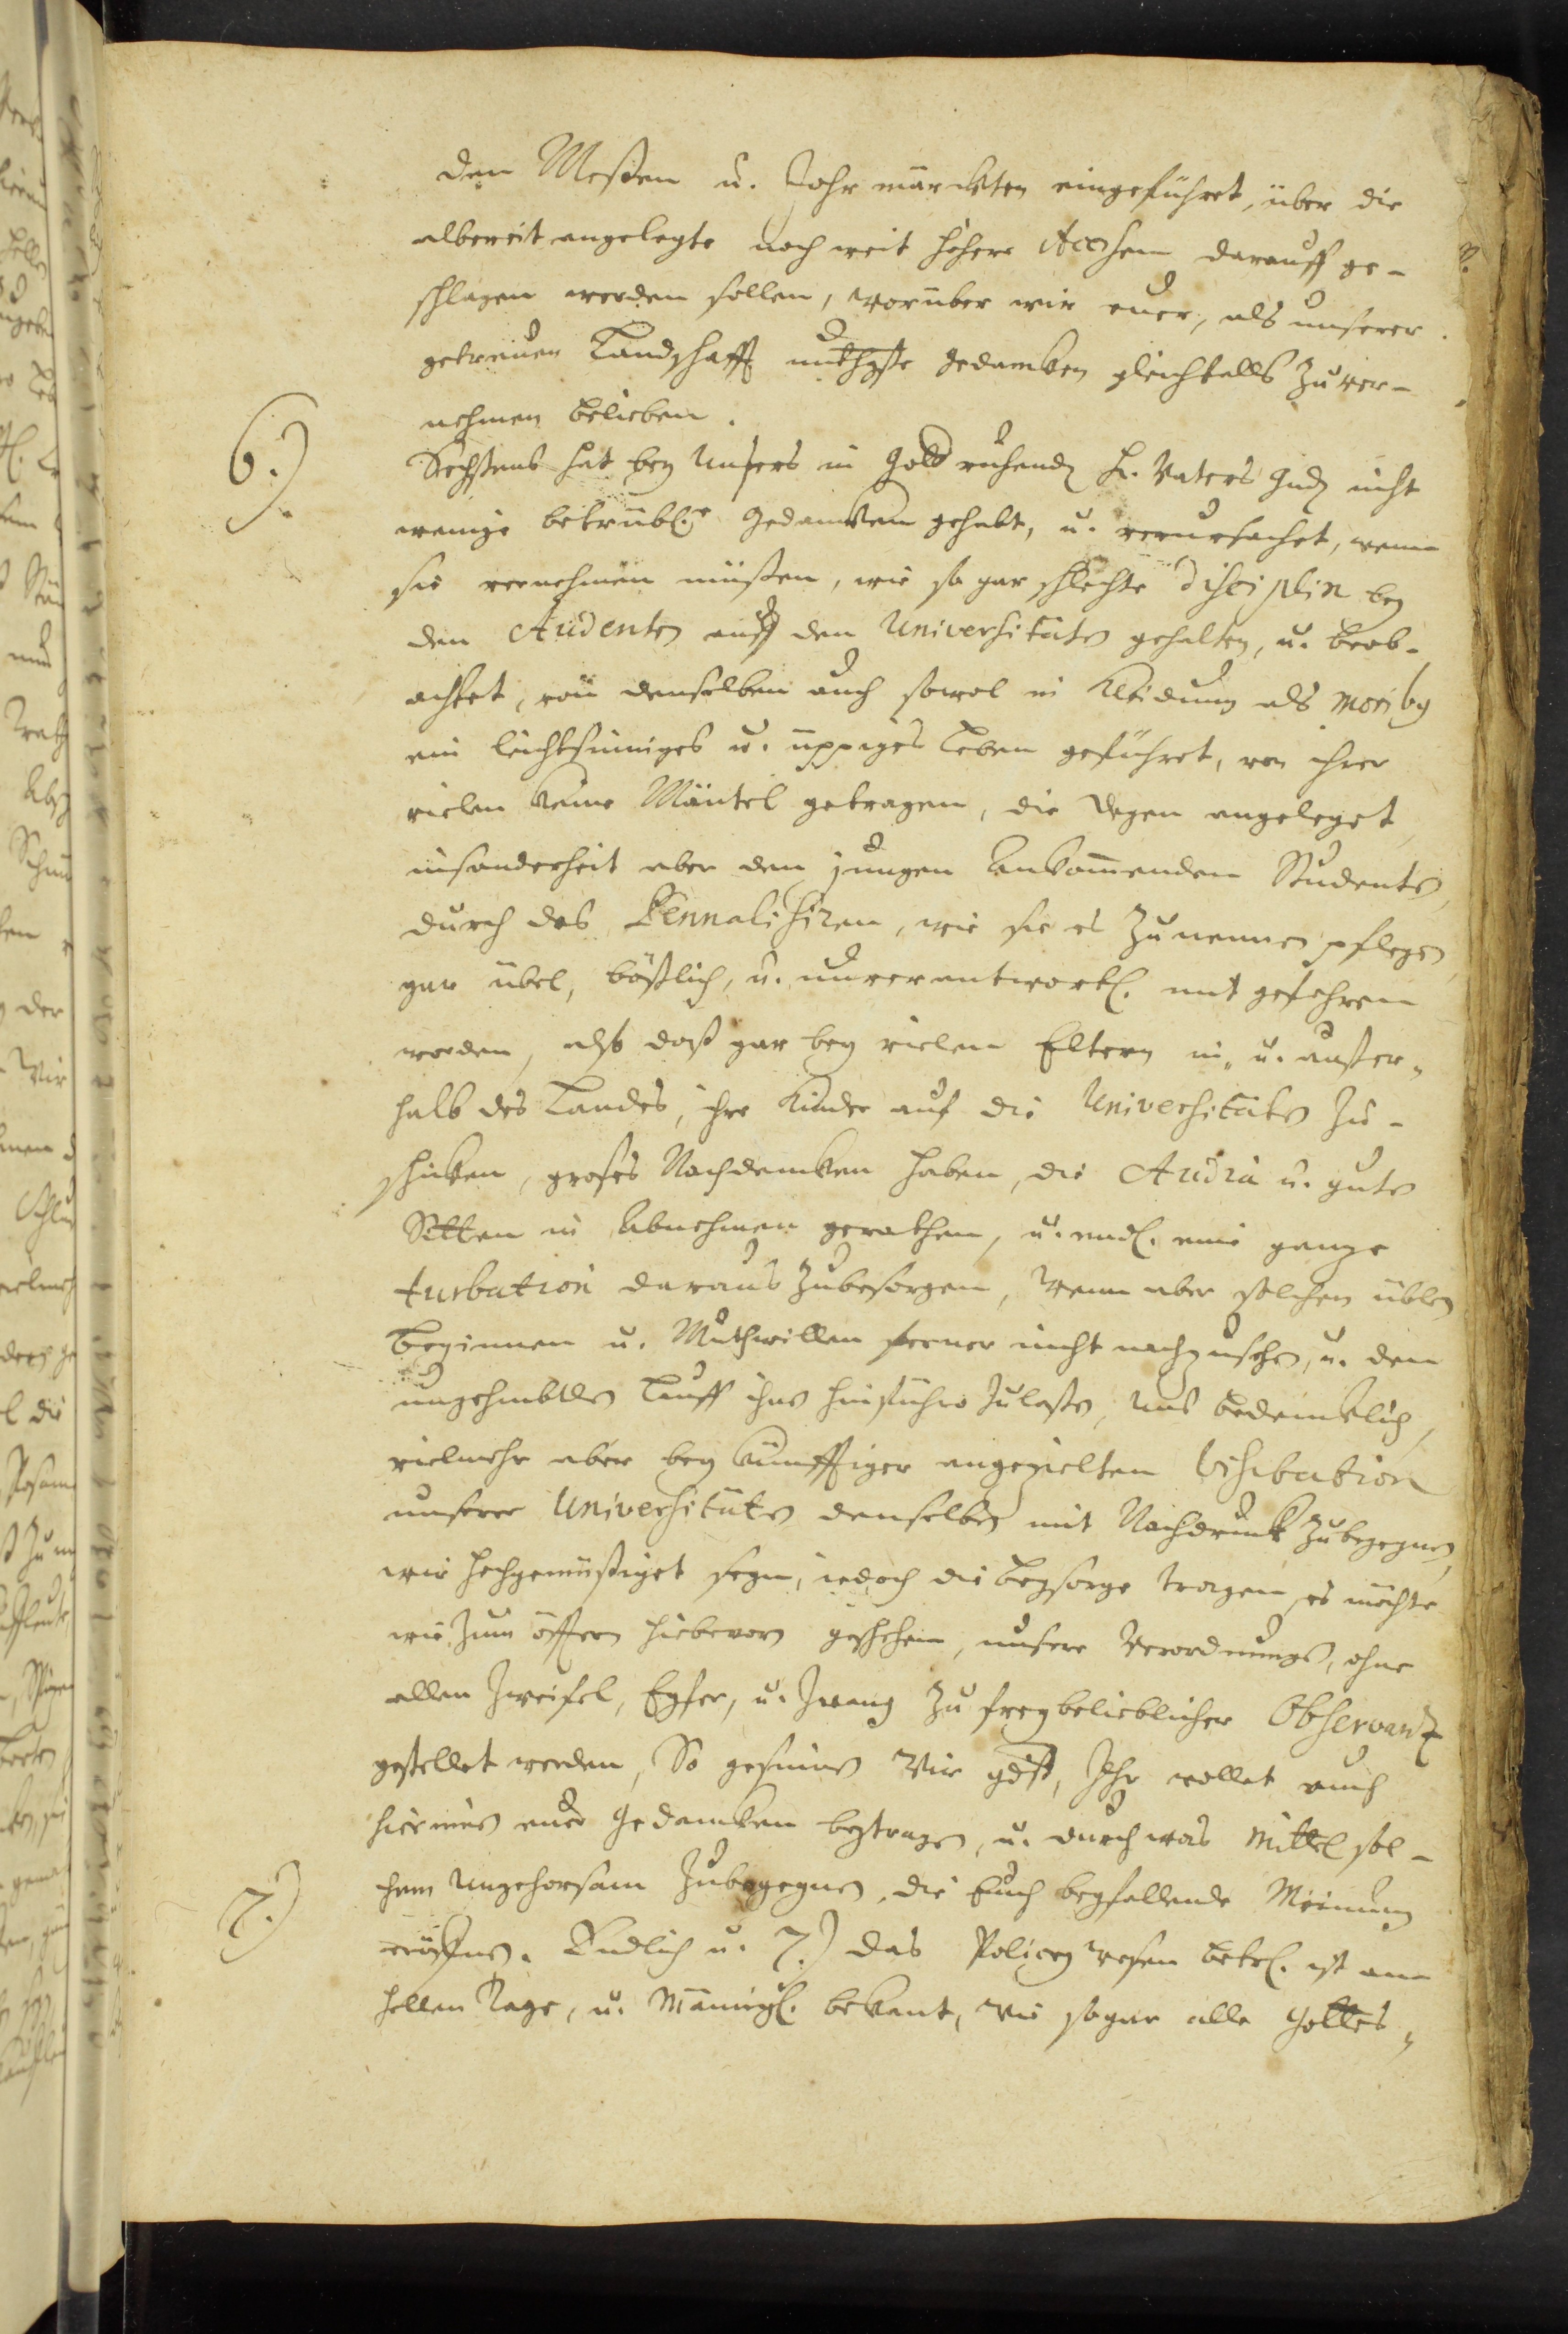 den Meßen u. Jahr märckten eingeführet, über die
albereit angelegte noch weit höhere Accisen darauff ge-
schlagen werden sollen, worüber wir euer, als unserer
getreuen Landschafft unthgste gedancken gleichfalls zuver-
nehmen belieben.
6.)
Sechstens hat bey Unsers in Gott ruhendn Hr. Vaters Gndn nicht
wenige betrübl.e gedancken gehabt, u. verursachet, wenn
sie vernehmen müßen, wie so gar schlechte disciplin bey
den Studenten auff den Universitäten gehalten, u. beob-
achtet, von denselben auch sowol in Kleidung als moribus
ein leichtsinniges u. üppiges Leben geführet, von ihrer
vielen keine Mäntel getragen, die degen angeleget,
insonderheit aber den jungen ankommenden Studenten,
durch das Pennalisiren, wie sie es zunennen pflegen,
gar übel, bößlich, u. unverantwortl. mit gefahren
worden, also daß gar bey vielen Eltern in- u. außer-
halb des Landes, ihre Kinder auf die Universitäten zu-
schicken, groses Nachdencken haben, die Studia u. guten
Sitten in Abnehmen gerathen, u. endl. eine gantze
turbation daraus zubesorgen, Wenn aber solchen üblen
beginnen u. Muthwillen ferner nicht nachzusehen, u. den
Lauff ihne hinführo zulaßen, uns bedencklich,
vielmehr aber bey künfftiger angezielten Visitation
unserer Universitäten denselben mit Nachdruck zubegegnen,
wir hochgemüßiget seyn, iedoch die beysorge tragen, es möchte
wie zum öfftern hiebevorn geschehen, unsere Verordnungen, ohne
allen Zweifel, Eyfer, u. Zwang zu freybelieblicher Observantz
gestellet werden, So gesinnen Wir gdst, Ihr wollet auch
hierinnen eure Gedancken beytragen, u. durch was Mittel sol-
chem Ungehorsam zubegegnen, die Euch beyfallende Meinung
7.)
eröffnen. Endlich u. 7.) das Policeywesen betrl. ist am
hellen Tage, u. Männigl. bekant, wie sogar alle Gottes-